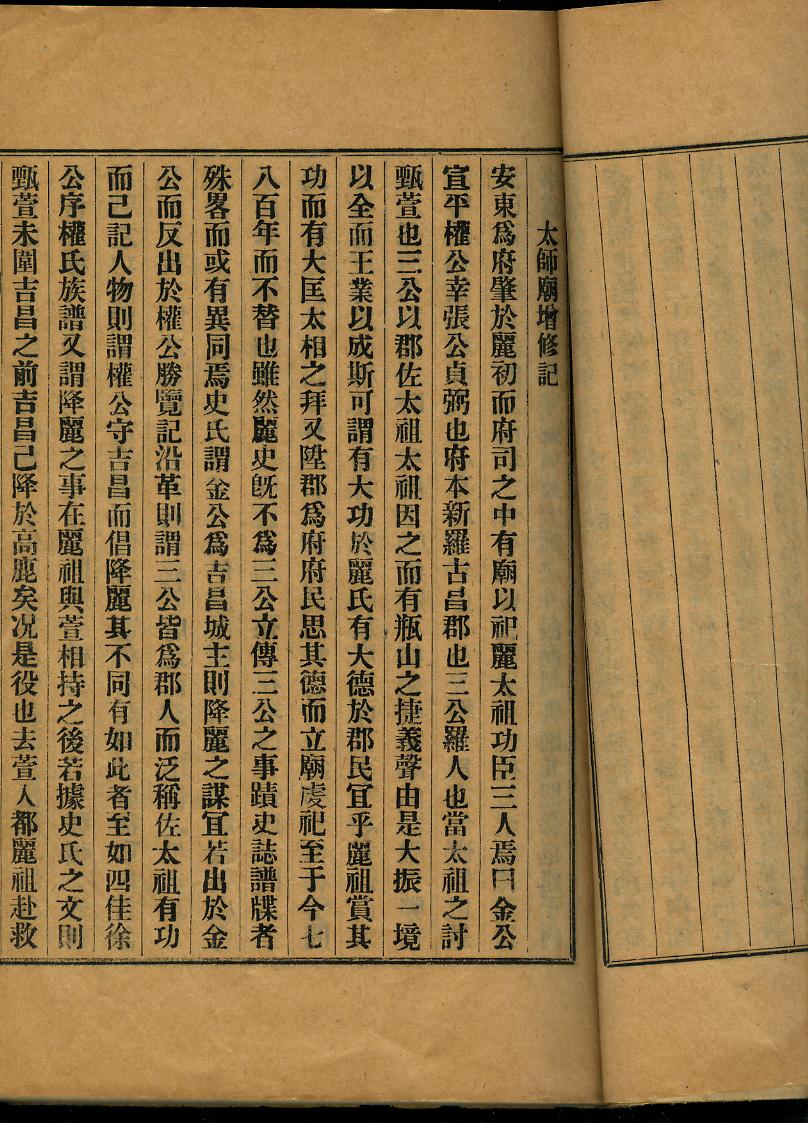 太師廟增修記
安東爲府肇於麗初而府司之中有廟以祀麗太祖功臣三人焉曰金公
宣平權公幸張公貞弼也府本新羅古昌郡也三公羅人也當太祖之討
甄萱也三公以郡佐太祖太祖因之而有甁山之捷義聲由是大振一境
以全而王業以成斯可謂有大功於麗氏有大德於郡民宜乎麗祖賞其
功而有大匡太相之拜又陞郡爲府府民思其德而立廟虔祀至于今七
八百年而不替也雖然麗史旣不爲三公立傳三公之事蹟史誌譜牒者
殊畧而或有異同焉史氏謂金公爲吉昌城主則降麗之謀宜若出於金
公而反出於權公勝覽記沿革則謂三公皆爲郡人而泛稱佐太祖有功
而己記人物則謂權公守吉昌而倡降麗其不同有如此者至如四佳徐
公序權氏族譜又謂降麗之事在麗祖與萱相持之後若據史氏之文則
甄萱未圍吉昌之前吉昌己降於高麗矣况是役也去萱人都麗祖赴救